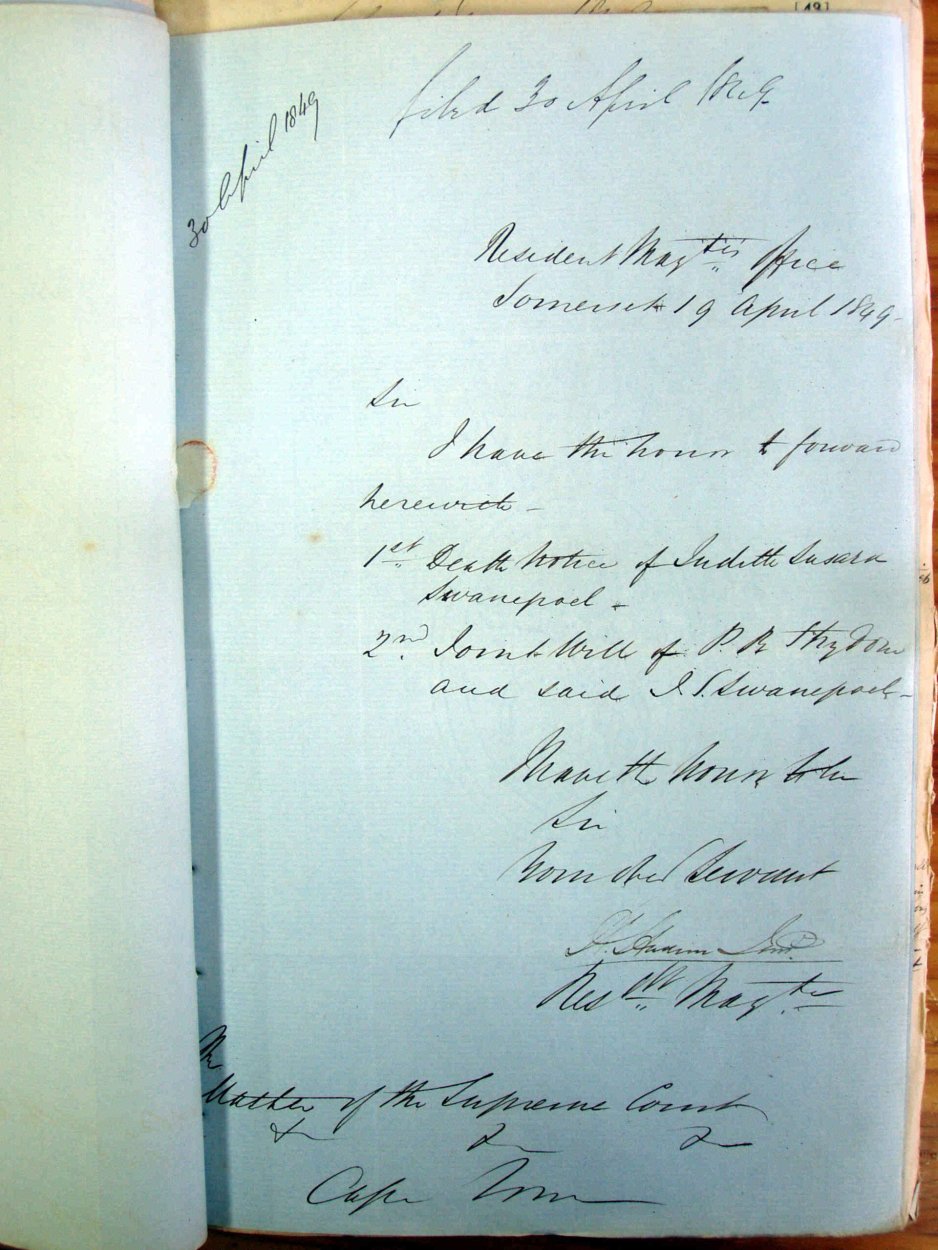 [49]
filed 30 April 1849
30 April 1849
Resident Mag.tes Office
Somerset 19 April 1849 -
Sir
I have the honor to forward
herewith -
1st. Death Notice of Judith Susara
Swanepoel -
2nd. Joint Will of P. R.
and said J. S. Swanepoel -
I have the honor to be
Sir
Your Obed Servant
Resdt. Mag.te
The
Master of the Supreme Court
&c &c &c
Cape Town